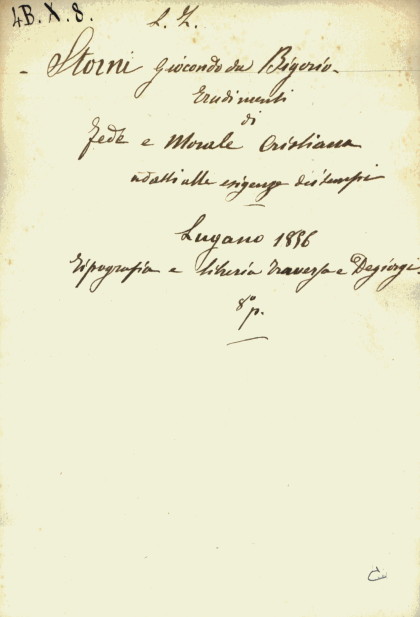 4B. X. 8.
L. Z.
- Storni Giocondo da Bigorio -
Erudimenti
di
Fede e Morale Cristiana
adatti alle esigenze dei tempi
Lugano 1856
Tipografia e libreria Traversa e Degiorgi.
8º p.
C